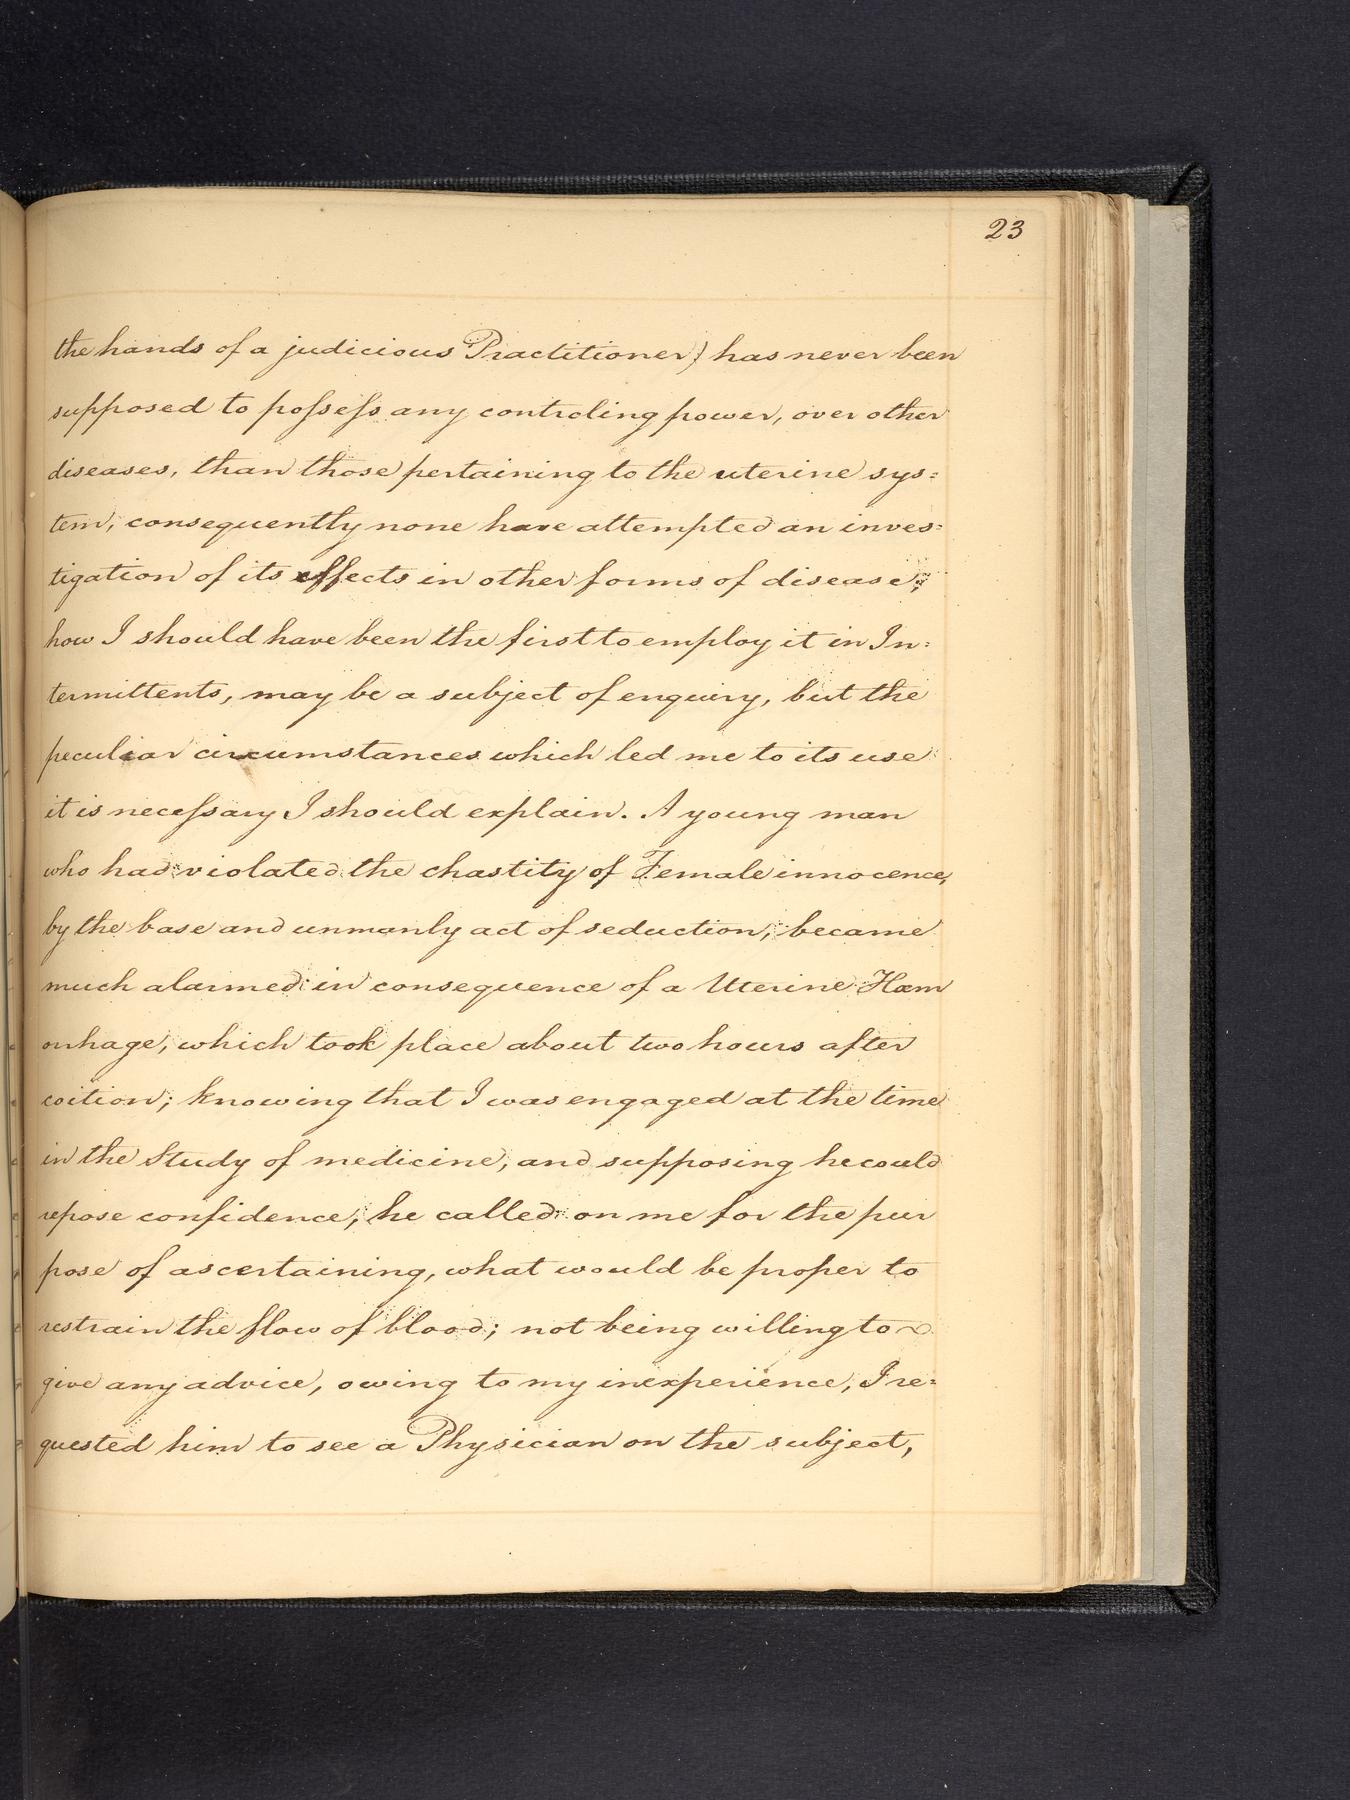 23
the hands of a judicious Practitioner) has never been
supposed to possess any controling power, over other
diseases, than those pertaining to the uterine sys=
tem, consequently none have attempted an inves=
tigation of its effects in other forms of disease;
how I should have been the first to employ it in In=
termittents, may be a subject of enquiry, but the
peculiar circumstances which led me to its use
it is necessary I should explain. A young man
who had violated the chastity of Female innocence,
by the base and unmanly act of seduction, became
much alarmed in consequence of a Uterine Hæm
orrhage, which took place about two hours after
coition; knowing that I was engaged at the time
in the Study of medicine, and supposing he could
repose confidence, he called on me for the pur
pose of ascertaining, what would be proper to
restrain the flow of blood; not being willing to
give any advice, owing to my inexperience, I re=
quested him to see a Physician on the subject,